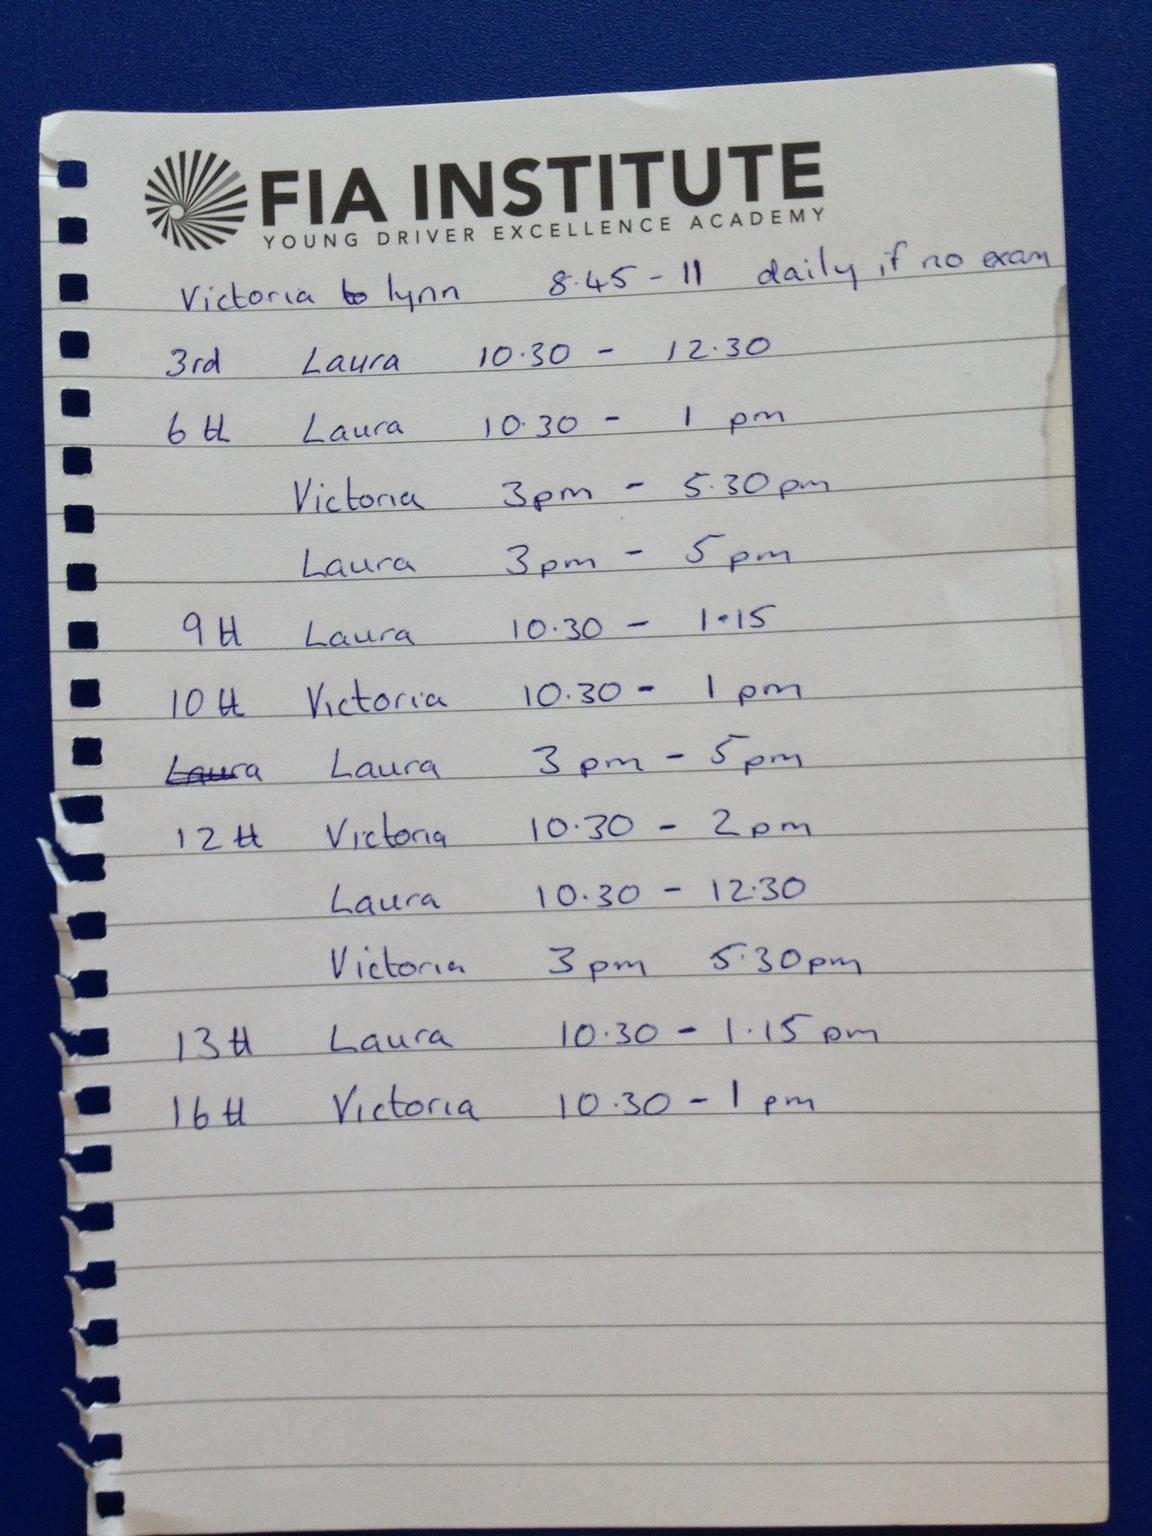 FIA INSTITUTE
YOUNG DRIVER EXCELLENCE ACADEMY
Victoria to lynn 8.45 - 11 daily if no exam
3rd Laura 10.30 - 12.30
6th Laura 10.30 - 1 pm
Victoria 3pm - 5.30pm
Laura 3pm - 5pm
9th Laura 10.30 - 1.15
10th Victoria 10.30 - 1 pm
Laura Laura 3pm - 5pm
12th Victoria 10.30 - 2pm
Laura 10.30 - 12.30
Victoria 3pm 5.30pm
13th Laura 10.30 - 1.15pm
16th Victoria 10.30 - 1 pm